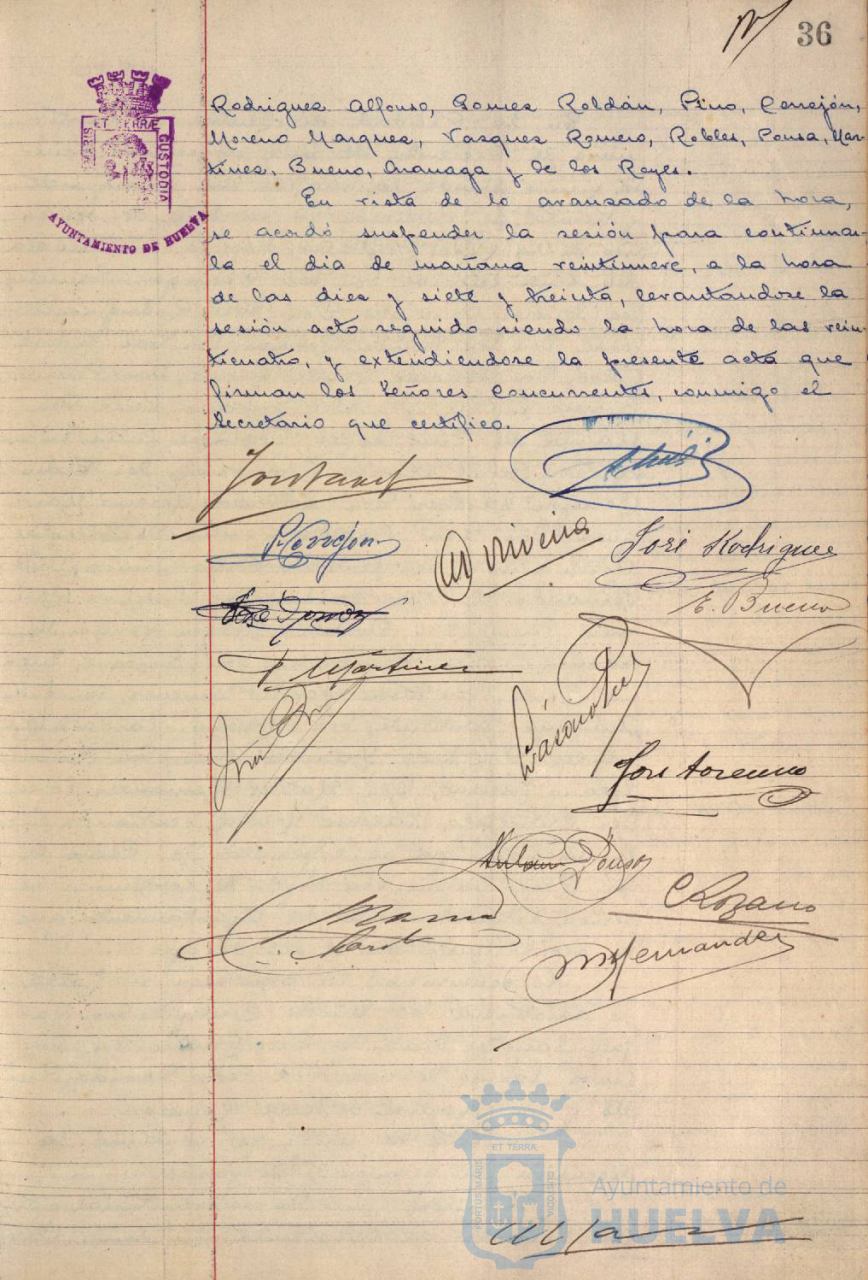 36
ET TERRÆ
MARIS
CUSTODIA
AYUNTAMIENTO DE HUELVA
Rodriguez Alfonso, Gomez Roldán, Pino, Cerrejón,
Moreno Marquez, Vazquez Romero, Robles, Ponsa, Mar-
tinez, Bueno, Aranaga y de los Reyes.
En vista de lo avanzado de la hora,
se acordó suspender la sesión para continuar-
la el dia de mañana veintinueve, a la hora
de las diez y siete y treinta, levantandose la
sesión acto seguido siendo la hora de las vein-
ticuatro, y extendiendose la presente acta que
firman los Señores Concurrentes, conmigo el
Secretario que certifico.
P. Cerrejon
José Rodriguez
E. Bueno
Martinez
José
Ponsa
Lozano
M Hernandez
ET TERRÆ
PORTUS MARIS
CUSTODIA
Ayuntamiento de
HUELVA